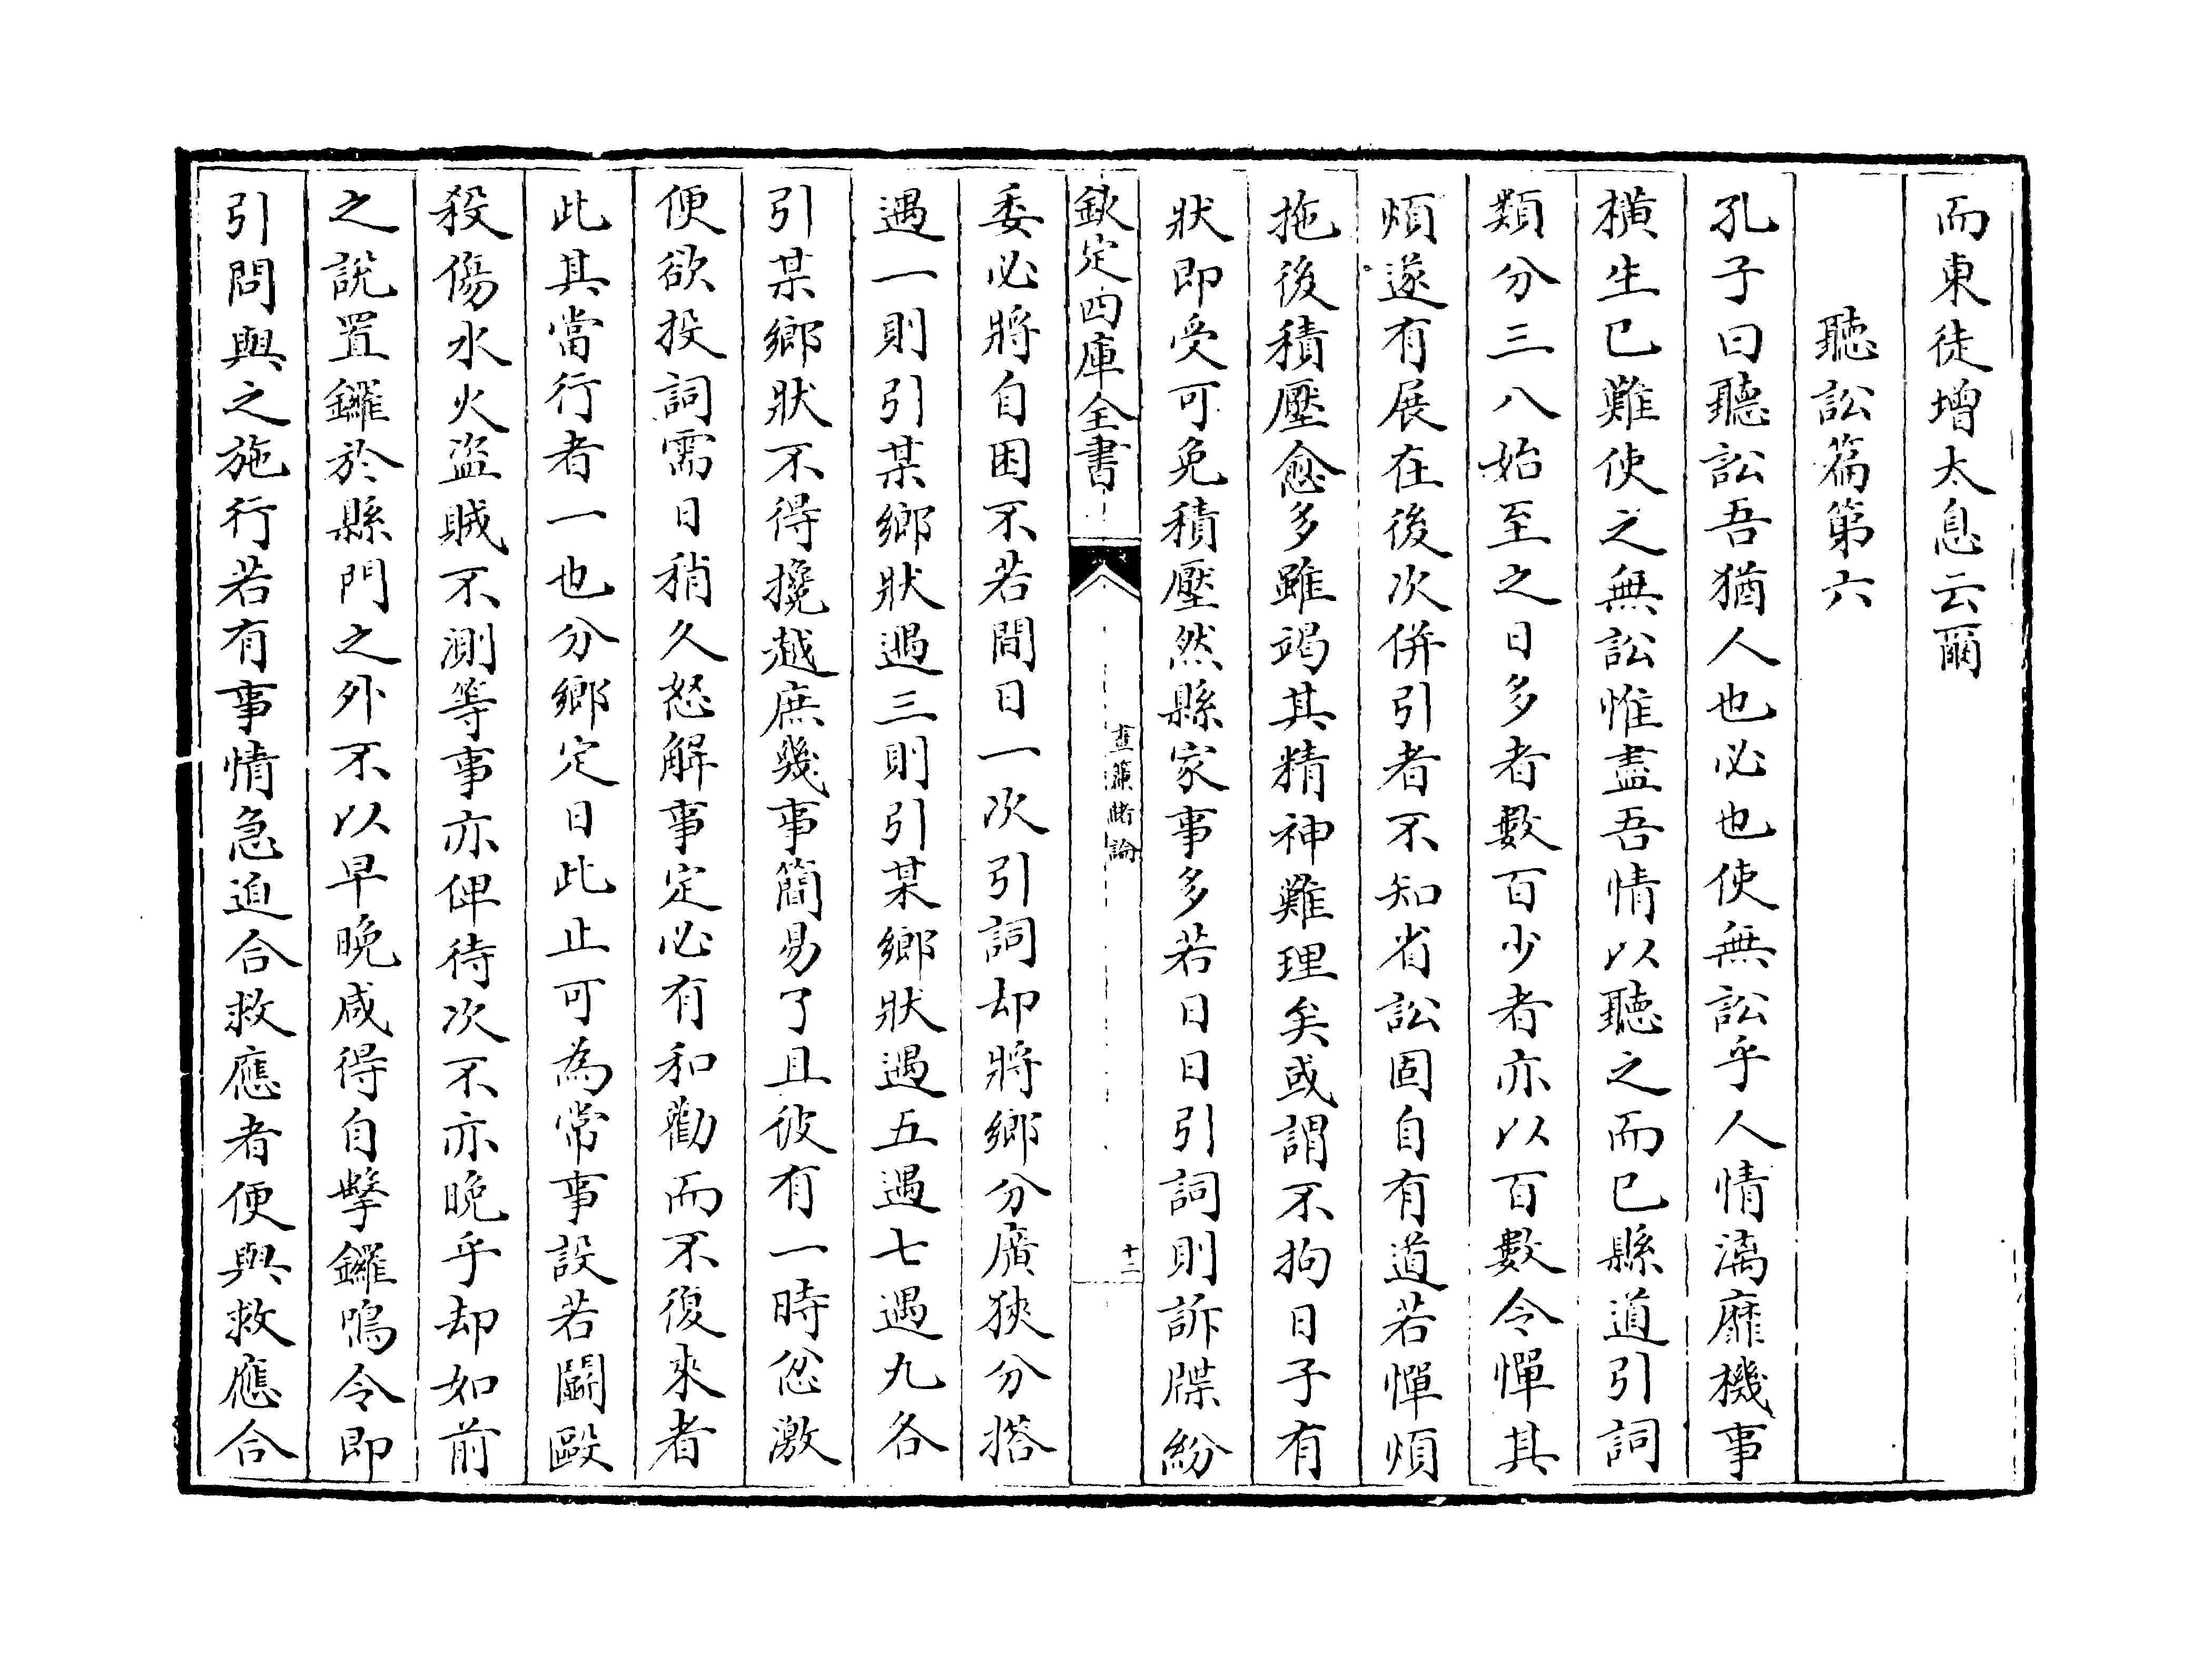 而東徒增太息云爾
聽訟篇第六
孔子曰聽訟吾猶人也必也使無訟乎人情漓靡機事
橫生已難使之無訟惟盡吾情以聽之而已縣道引詞
類分三八始至之日多者數百少者亦以百數令憚其
煩遂有展在後次併引者不知省訟固自有道若憚煩
拖後積壓愈多雖竭其精神難理矣或謂不拘日子有
狀即受可免積壓然縣家事多若日日引詞則訴牒紛
欽定四庫全書
晝簾緒論
十二
委必將自困不若間日一次引詞却將鄉分廣狹分搭
遇一則引某鄉狀遇三則引某鄉狀遇五遇七遇九各
引某鄉狀不得攙越庶幾事簡易了且彼有一時忿激
便欲投詞需日稍久怒解事定必有和勸而不復來者
此其當行者一也分鄉定日此止可為常事設若鬬毆
殺傷水火盜賊不測等事亦俾待次不亦晚乎却如前
之說置鑼於縣門之外不以早晚咸得自擊鑼鳴令即
引問與之施行若有事情急迫合救應者便與救應合